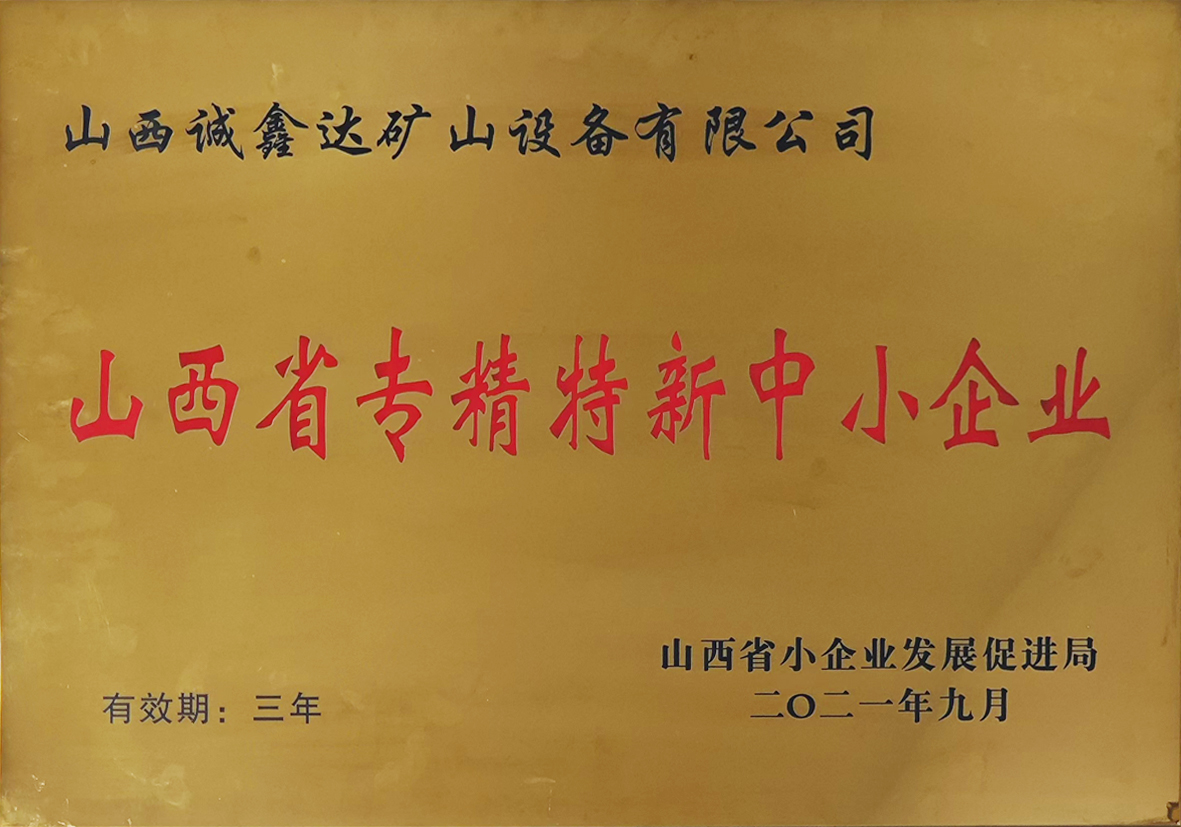 山西诚鑫达矿山设备有限公司
山西省专精特新中小企业
山西省小企业发展促进局
有效期：三年
二〇二一年九月